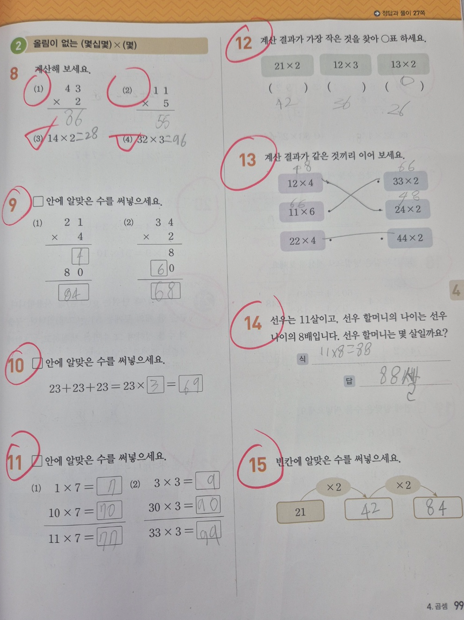 정답과 풀이 27쪽
2 올림이 없는 (몇십몇)×(몇)
8 계산해 보세요.
(1) 4 3
× 2
86
(2) 1 1
× 5
55
(3) 14×2=28
(4) 32×3=96
9 □ 안에 알맞은 수를 써넣으세요.
(1) 2 1
× 4
8 0
84
(2) 3 4
× 2
8
6 0
68
10 □ 안에 알맞은 수를 써넣으세요.
23+23+23=23×3=69
11 □ 안에 알맞은 수를 써넣으세요.
(1) 1×7=7
10×7=70
11×7=77
(2) 3×3=9
30×3=90
33×3=99
12 계산 결과가 가장 작은 것을 찾아 ○표 하세요.
21×2 12×3 13×2
( ) ( ) (○)
42 36 26
13 계산 결과가 같은 것끼리 이어 보세요.
48 66
12×4 33×2
66 48
11×6 24×2
22×4 44×2
14 선우는 11살이고, 선우 할머니의 나이는 선우
나이의 8배입니다. 선우 할머니는 몇 살일까요?
식 11×8=88
답 88
15 빈칸에 알맞은 수를 써넣으세요.
×2 ×2
21 42 84
4
4. 곱셈 99